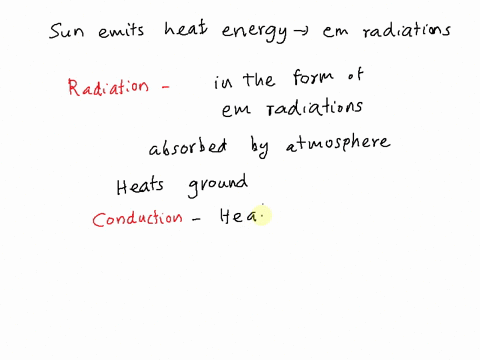 Sun emits heat energy → em radiations
Radiation - in the form of
em radiations
absorbed by atmosphere
Heats ground
Conduction - Hea